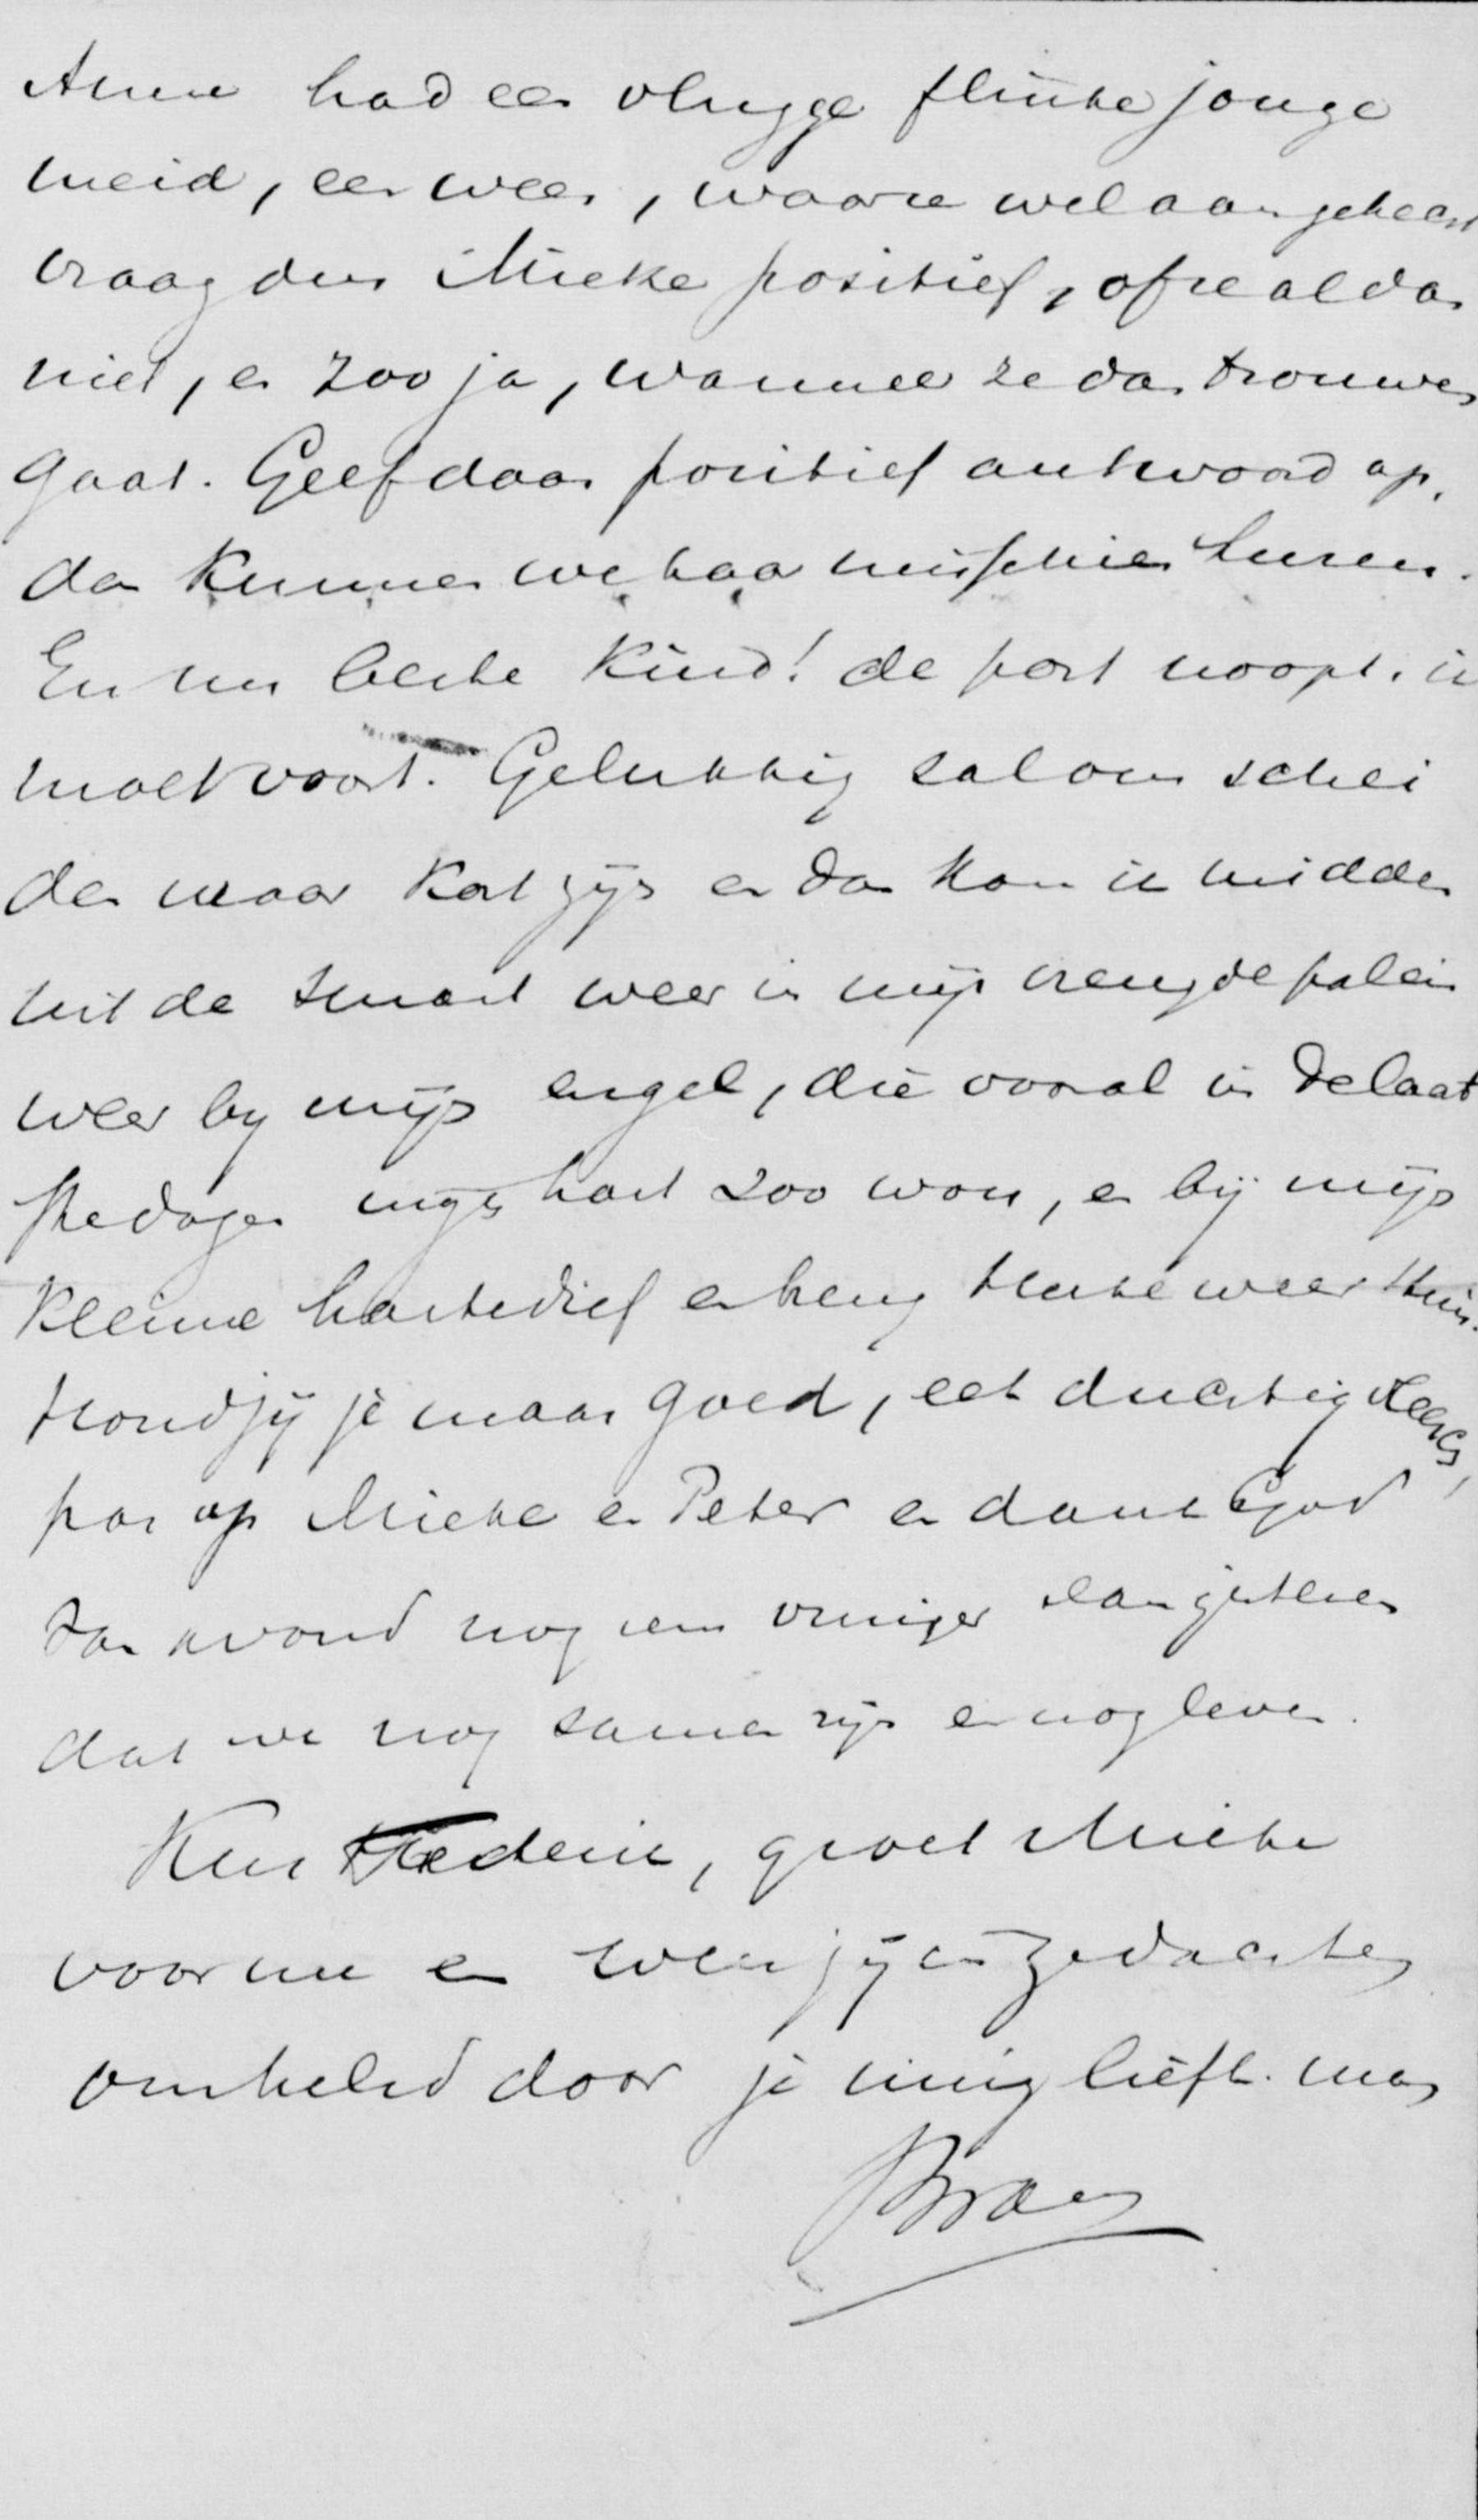 Anna had een vlugge flinke jonge
meid, een wees, waare wel aan gehecht
vraag dus Mieke positief, of ze al dan
niet, en zoo ja, wanneer ze dan trouwen
gaat. Geef daar positief antwoord op,
dan kunnen we haar misschien huren.
En nu beste kind! de post noopt. ik
moet voort. Gelukkig zal ons schei
den maar kort zijn en dan kom ik midden
uit de smart weer in mijn vreugdepaleis
weer by mijn engel, die vooral in de laat
ste dagen mijn hart zoo won, en bij mijn
kleine hartedief en heug
Houd jij je maar goed, eet duchtig vleesch,
pas op Mieke en Peter en dank God
van avond nog eens inniger dan gisteren
dat we nog samen zijn en nog leven.
Kus, groet Mieke
voor me en wees jij in gedachten
omhelsd door je innig liefh. man
Bram